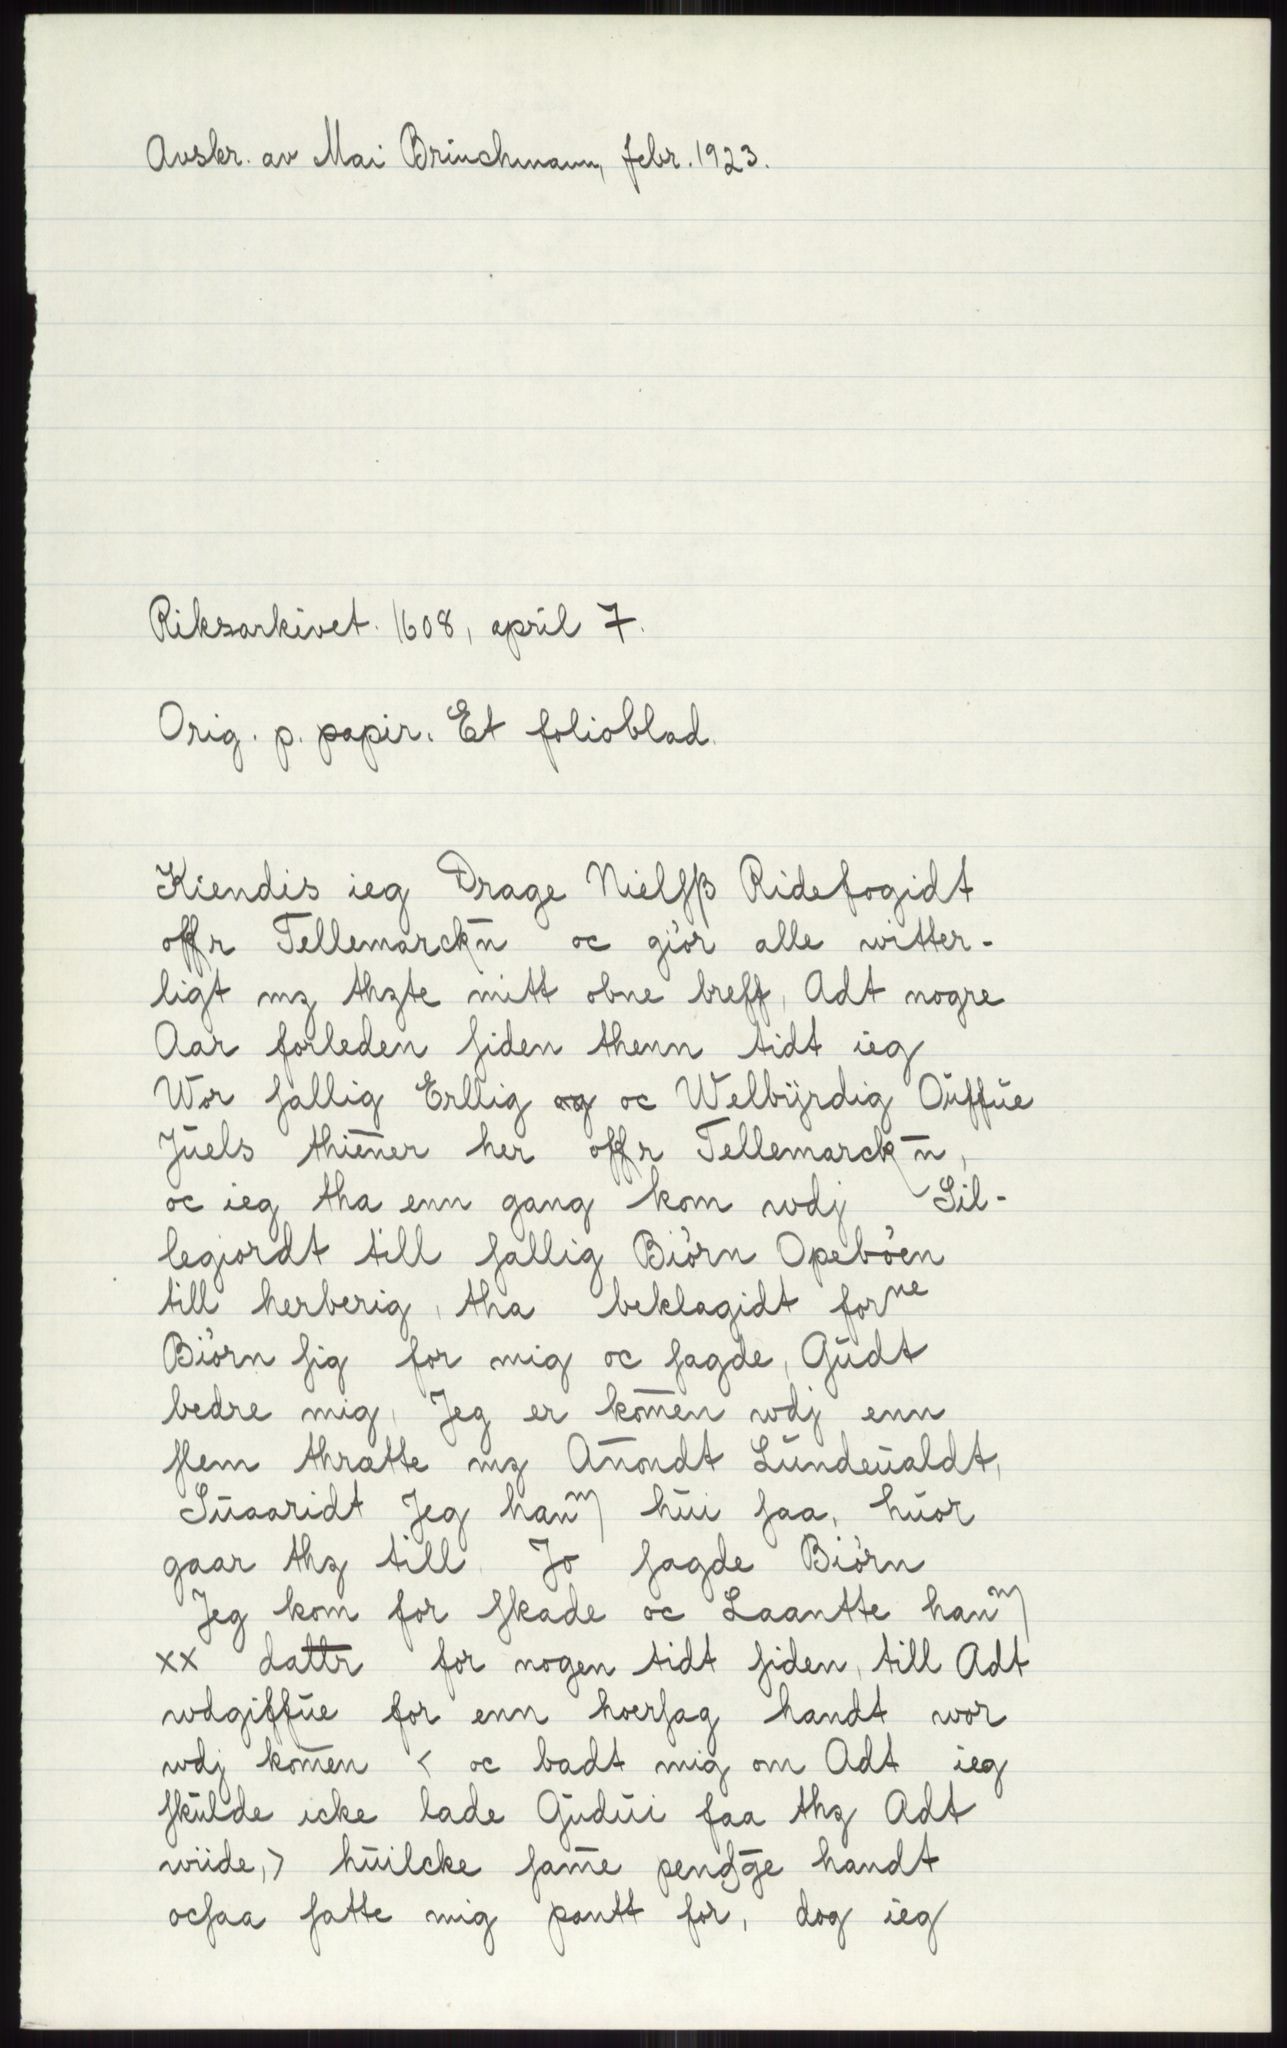 Avskr. av Mai Brinchmann, febr. 1923.
Riksarkivet. 1608, april 7.
Orig. p. papir. Et folioblad.
Kiendis ieg Drage Nielsß Ridefogidt
offr Tellemarck̄n oc giör alle witter-
ligt mz thzte mitt obne breff, Adt nogre
Aar forleden siden thenn tidt ieg
Wor sallig Erllig og oc Welbÿrdig Ŭffŭe
Jŭels thienner her offr Tellemarck̄n,
oc ieg tha enn gang kom wdj Sil-
legiordt till sallig Biörn Opeböen
till herberig, tha beklagidt forne
Biörn sig for mig oc sagde, Gŭdt
bedre mig, Jeg er kom̄en wdj enn
slem thratte mz Anŏndt Lŭndeŭaldt,
Sŭaaridt Jeg hanm hŭi saa, hŭor
gaar thz till. Jo sagde Biörn
Jeg kom for skade oc Laantte hanm
xx dattr for nogen tidt siden, till Adt
wdgiffŭe for enn hoersag handt wor
wdj kom̄en < oc badt mig om Adt ieg
skŭlde icke lade Gŭdŭi faa thz Adt
wiide,> hŭilcke sam̄e pendḡe handt
ocsaa satte mig pantt for, dog ieg